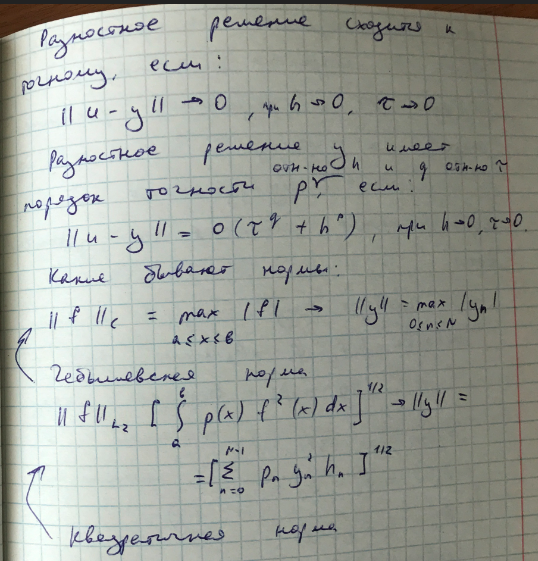 Разностное решение сходится к
точному, если:
||u - y|| → 0, при h → 0, τ → 0
Разностное решение y имеет
отн-но h и q отн-но τ
порядок точности p, если:
||u - y|| = O(τ^q + h^p), при h→0, τ→0.
Какие бывают нормы:
||f||_c = max |f| → ||y|| = max |y_n|
a≤x≤b 0≤n≤N
Чебышевская норма
||f||_{L_2} [∫_a^b ρ(x) f²(x) dx]^{1/2} → ||y|| =
= [∑_{n=0}^{N-1} ρ_n y_n² h_n]^{1/2}
Квадратичная норма